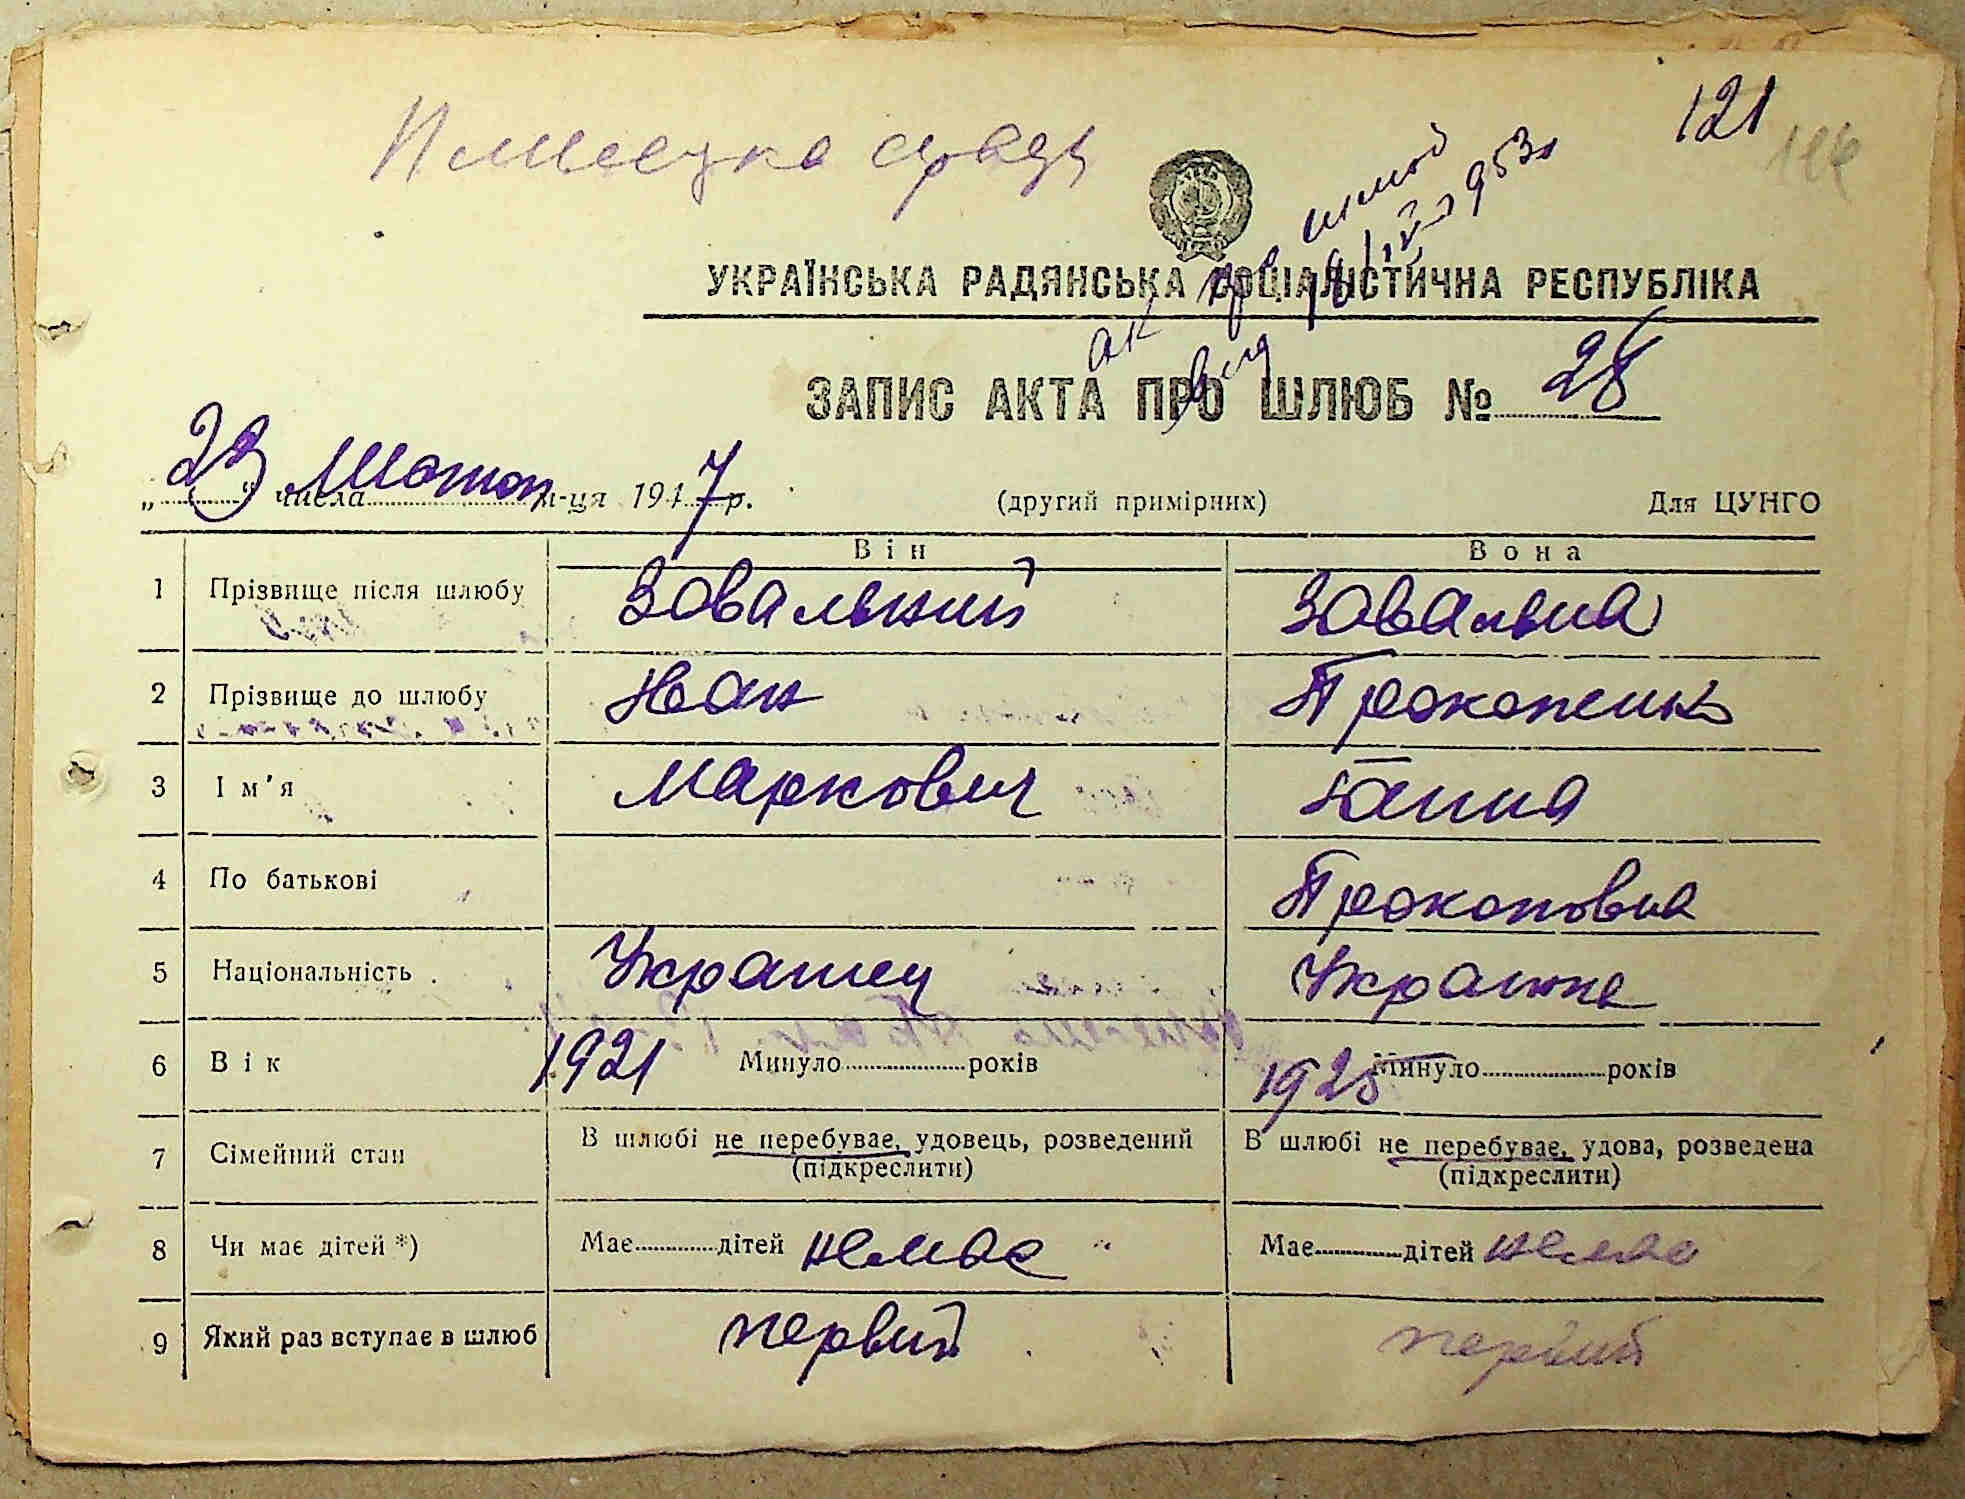 121
УКРАЇНСЬКА РАДЯНСЬКА СОЦІАЛІСТИЧНА РЕСПУБЛІКА
ЗАПИС АКТА ПРО ШЛЮБ № 28
„23" числа м-ця 1947 р. (другий примірник) Для ЦУНГО
Він Вона
1 Прізвище після шлюбу Завальний Завальна
2 Прізвище до шлюбу Иван Прокопенко
3 Ім'я Маркович Ганна
4 По батькові Прокоповна
5 Національність Украинец Украинка
6 Вік 1921 Минуло років 1925 Минуло років
7 Сімейний стан В шлюбі не перебуває, удовець, розведений В шлюбі не перебуває, удова, розведена
(підкреслити) (підкреслити)
8 Чи має дітей *) Має дітей немає Має дітей немає
9 Який раз вступає в шлюб первий первий